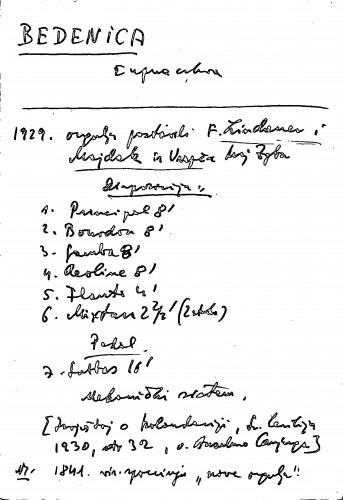 BEDENICA
Župna crkva
1929. orgulje postavili F. Lindauer i
Majdak iz Vrapča kraj Zgba
Dispozicija:
1. Principal 8'
2. Bourdon 8'
3. Gamba 8'
4. Aeoline 8'
5. Flauto 4'
6. Mixtur 2 2/3'
Pedal
7. Subbas 16'
Mehanički sistem.
[Izvještaj o kolaudaciji, Sv. Cecilija
1930, str 32, o. Anselmo Canjuga]
1841. "nove orgulje"!